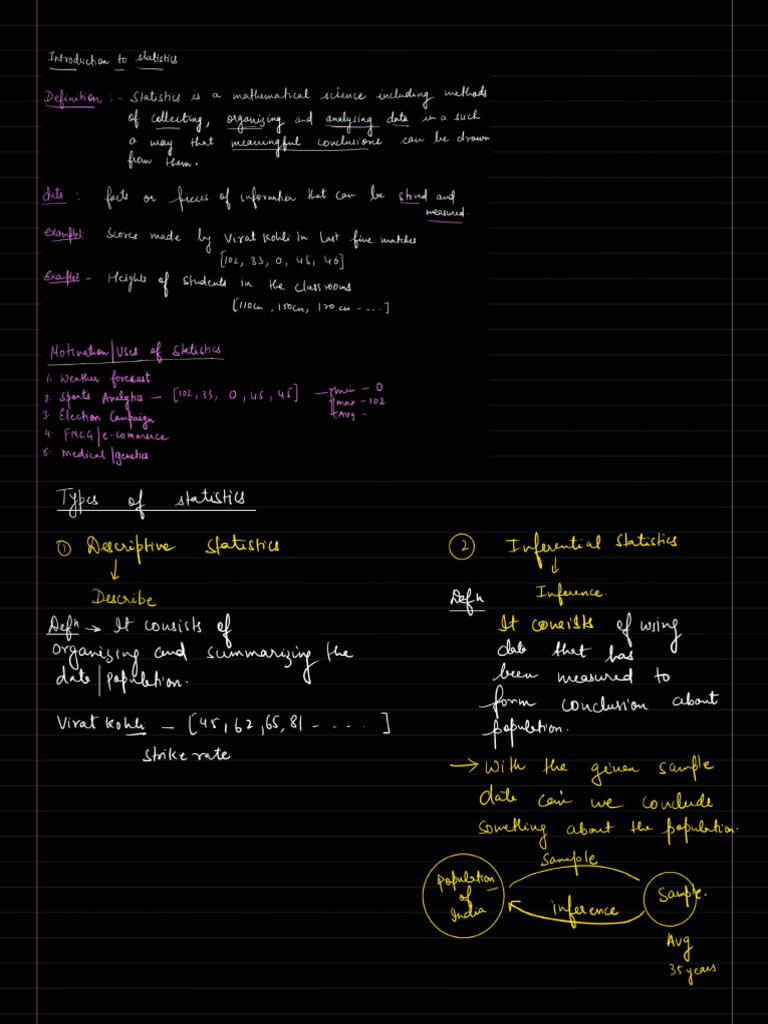 Introduction to statistics
Definition :- Statistics is a mathematical science including methods
of collecting, organizing and analysing data in a such
a way that meaningful conclusions can be drawn
from them.
data : facts or pieces of information that can be stored and
measured.
example: Scores made by Virat Kohli in last five matches
[102, 33, 0, 45, 46]
Example:- Heights of students in the classrooms
[110cm, 150cm, 120cm ....]
Motivation/Uses of Statistics
1. Weather forecast
2. Sports Analytics - [102, 33, 0, 45, 45] - min - 0
max - 102
Avg -
3. Election Campaign
4. FMCG/e-commerce
5. Medical/genetics
Types of statistics
① Descriptive Statistics
↓
Describe
Defn → It consists of
organizing and summarizing the
data/population.
Virat Kohli - [45, 62, 65, 81 - .....]
Strike rate
② Inferential Statistics
↓
Inference.
Defn
It consists of using
data that has
been measured to
form conclusion about
population.
→ With the given sample
data can we conclude
something about the population.
sample
Population
of
India
inference
Sample.
Avg
35 years